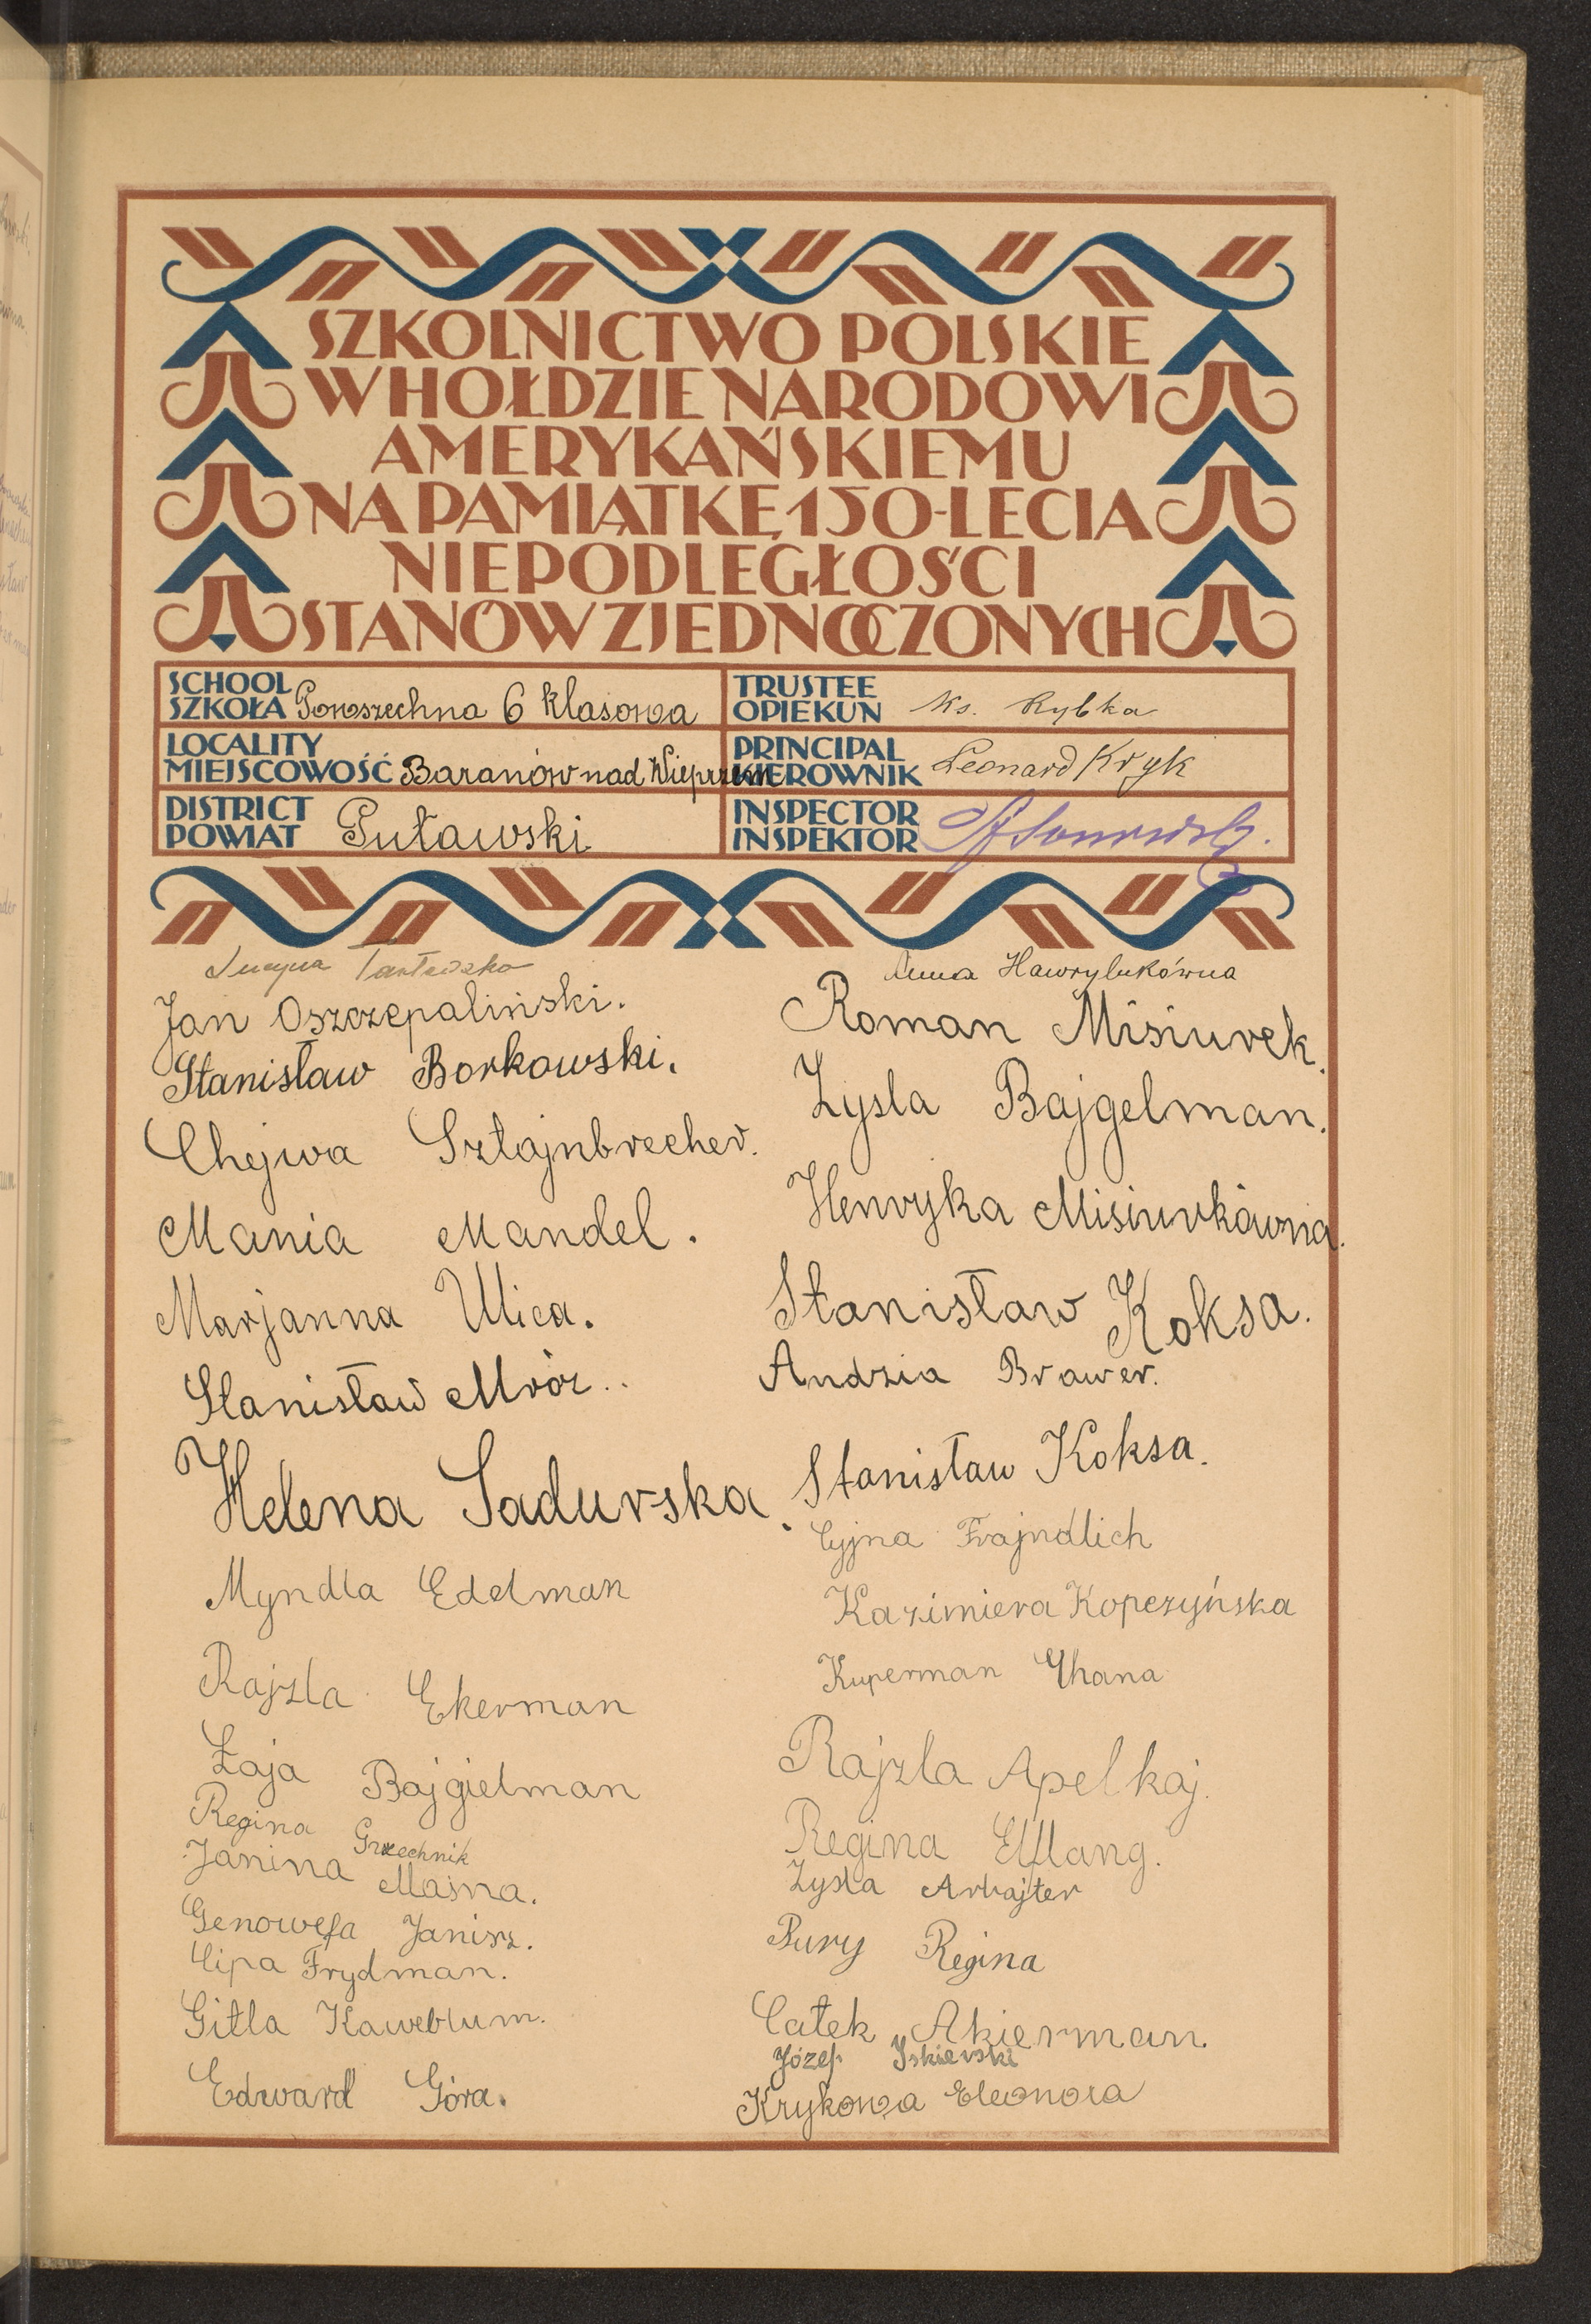 SZKOLNICTWO POLSKIE
W HOŁDZIE NARODOWI
AMERYKAŃSKIEMU
NA PAMIĄTKĘ 150-LECIA
NIEPODLEGŁOŚCI
STANÓW ZJEDNOCZONYCH
SCHOOL
SZKOŁA Powszechna 6 klasowa
TRUSTEE
OPIEKUN Ks. Rybka
LOCALITY
MIEJSCOWOŚĆ Baranów nad Wieprzem
PRINCIPAL
KIEROWNIK Leonard Kryk
DISTRICT
POWIAT Puławski
INSPECTOR
INSPEKTOR
Lucyna
Jan Oszczepaliński.
Stanisław Borkowski.
Chejwa Sztajnbrecher.
Mania Mandel.
Marjanna Ulica.
Stanisław Mróz..
Helena Sadurska.
Myndla Edelman
Rajzla Ekerman
Łaja Bajgielman
Regina Grzechnik
Janina Masna.
Genowefa Janisz.
Cipa Frydman.
Gitla Kaweblum.
Edward Góra.
Anna Hawrylukówna
Roman Misiurek.
Zysla Bajgelman.
Henryka Misiurkówna.
Stanisław Koksa.
Andzia Brawer.
Stanisław Koksa.
Cyjna Frajndlich
Kazimiera Kopczyńska
Kuperman Chana
Rajzla Apelkaj.
Regina Elflang.
Zysla Arbajter
Bury Regina
Całek Akierman.
Józef Iskierski
Krykowa Eleonora